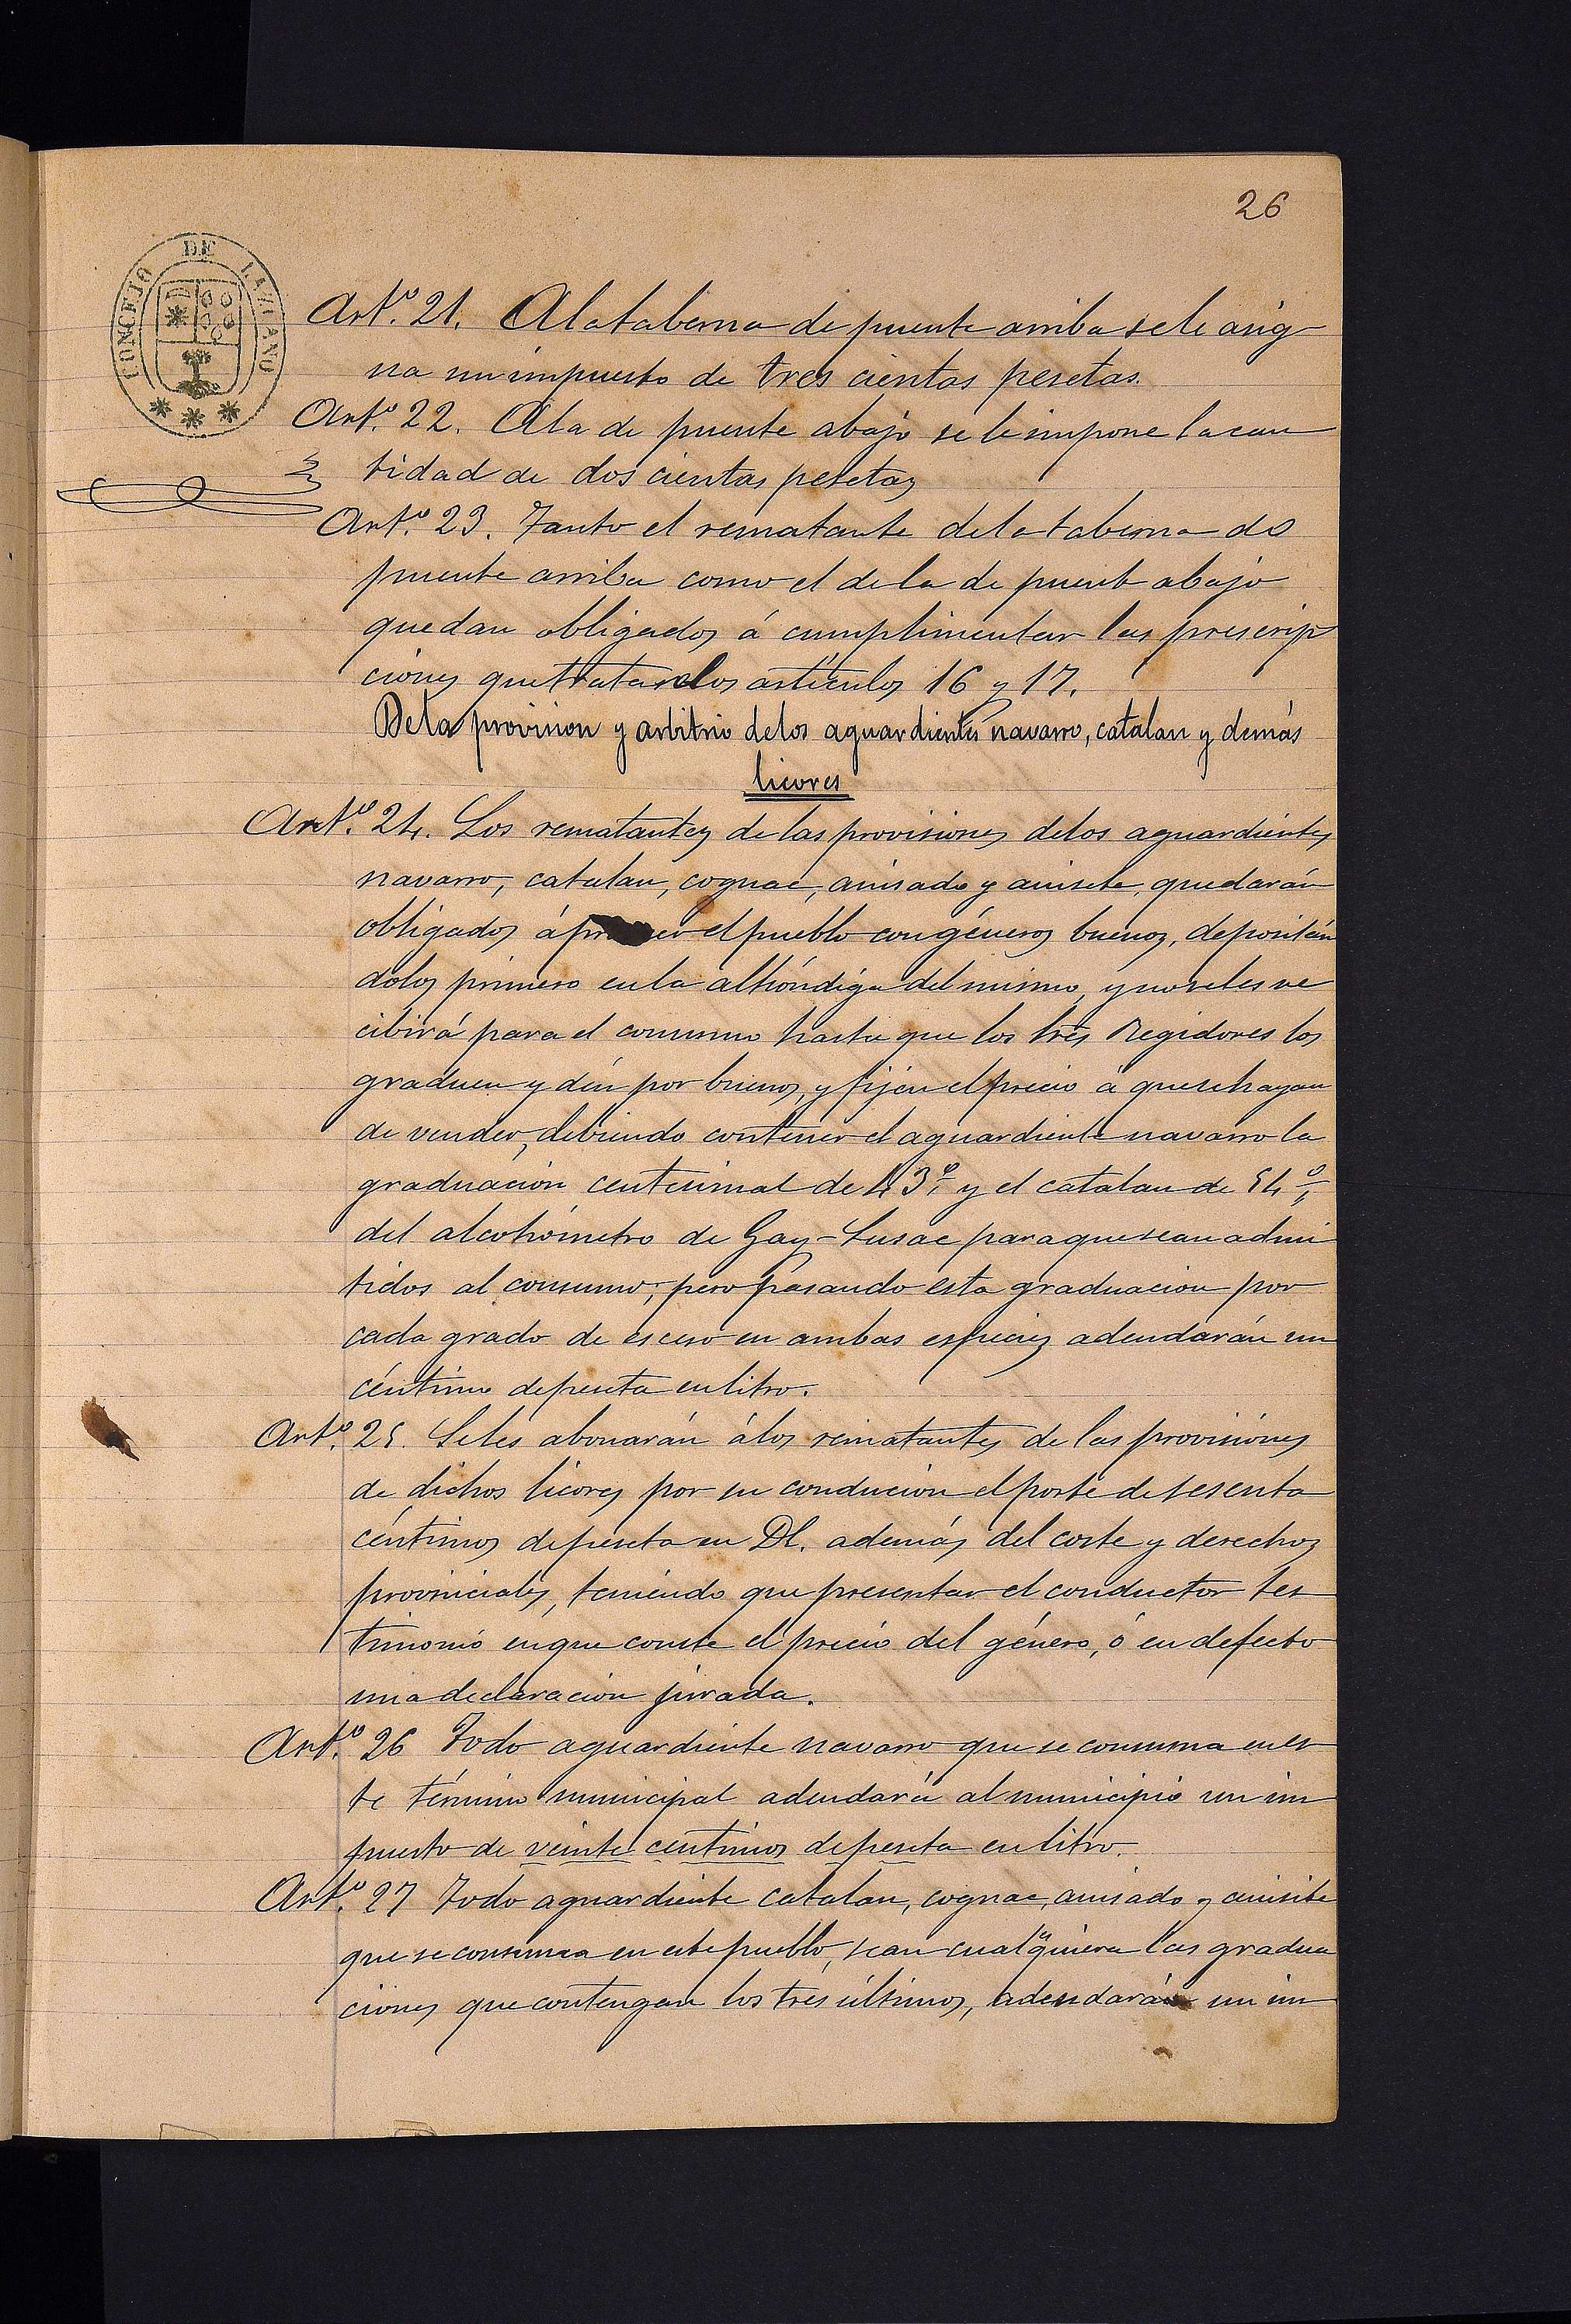 26
CONCEJO DE LAZCANO
Artº. 21. A la taberna de puente arriba se le asig-
na un impuesto de tres cientas pesetas.
Artº. 22. A la de puente abajo se le impone la can
tidad de dos cientas pesetas
Artº. 23. Tanto el rematante de la taberna de
puente arriba como el de la de puente abajo
quedan obligados á cumplimentar las prescrip
ciones que tratan los artículos 16 y 17.
De la provision y arbitrio de los aguardientes navarro, catalan y demás
licores
Artº. 24. Los rematantes de las provisiones de los aguardientes
navarro, catalan, cognac, anisado y anisete, quedarán
obligados á el pueblo con géneros buenos, depositán
dolos primero en la alhóndiga del mismo, y no se les re
cibirá para el consumo hasta que los tres Regidores los
graduen y dén por buenos, y fijen el precio á que se hayan
de vender, debiendo contener el aguardiente navarro la
graduación centesimal de 43º, y el catalan de 54º,
del alcohómetro de Gay-Lusac para que sean admi
tidos al consumo; pero pasando esta graduacion por
cada grado de esceso en ambas especies adeudarán un
céntimo de peseta en litro.
Artº. 25. Se les abonarán á los rematantes de las provisiónes
de dichos licores por su conducion el porte de sesenta
céntimos de peseta en Dl. además del coste y derechos
provinciales, teniendo que presentar el conductor tes
timonio en que conste el precio del género, ó en defecto
una declaracion jurada.
Artº. 26 Todo aguardiente navarro que se consuma en es
te término municipal adeudará al municipio un im
puesto de veinte centimos de peseta en litro.
Artº. 27 Todo aguardiente catalan, cognac, anisado y anisete
que se consuma en este pueblo, sean cualquiera las gradua
ciones que contengan los tres últimos, adeudarán un im